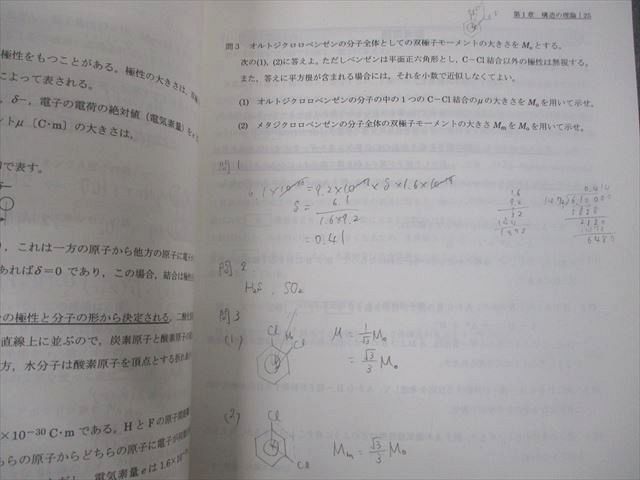 第1章 構造の理論 | 25
極性をもつことがある。極性の大きさは、
によって表される。
δ−、電子の電荷の絶対値（電気素量）を e
ント μ 〔C・m〕の大きさは、
で表す。
、これは一方の原子から他方の原子に電子
あれば δ＝0 であり、この場合、結合は極性
の極性と分子の形から決定される。二酸化
直線上に並ぶので、炭素原子と酸素原子の
方、水分子は酸素原子を頂点とする折れ
×10−30 C・m である。H と F の原子間距離
ちらの原子からどちらの原子に電子が
電気素量 e は 1.6×10
問3 オルトジクロロベンゼンの分子全体としての双極子モーメントの大きさを M₀ とする。
次の(1), (2)に答えよ。ただしベンゼンは平面正六角形とし、C−Cl 結合以外の極性は無視する。
また、答えに平方根が含まれる場合には、それを小数で近似しなくてよい。
(1) オルトジクロロベンゼンの分子の中の1つの C−Cl 結合の μ の大きさを M₀ を用いて示せ。
(2) メタジクロロベンゼンの分子全体の双極子モーメントの大きさ Mm を M₀ を用いて示せ。
問1
6.1×10 = 9.2×10 × δ × 1.6×10
δ = 6.1
1.6×9.2
= 0.41
1.6
9.2
32
144
1472
0.414
問2
H₂S , SO₂
問3
(1) Cl
μ = 1/√3 M₀
= √3/3 M₀
(2) Cl
Cl
Mm = √3/3 M₀